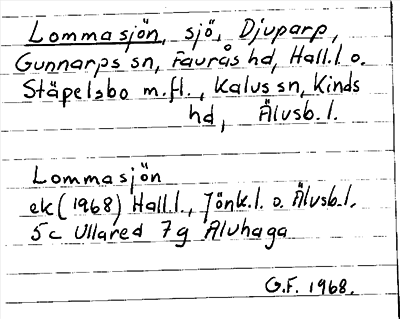 Lommasjön, sjö, Djuparp,
Gunnarps sn, Faurås hd, Hall.l. o.
Stäpelsbo m.fl., Kalvs sn, Kinds
hd, Älvsb.l.
Lommasjön
ek (1968) Hall.l., Jönk.l. o. Älvsb.l.
5c Ullared 7g Älvhaga
G.F. 1968.